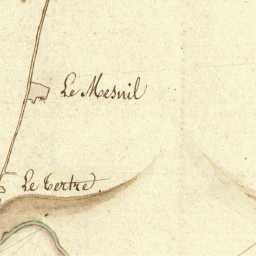 Le Mesnil
Le Tertre